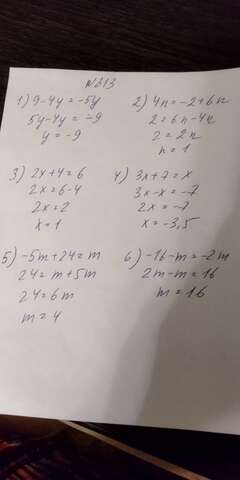 №613
1) 9-4y=-5y
5y-4y=-9
y=-9
2) 4n=-2+6n
2=6n-4n
2=2n
n=1
3) 2x+4=6
2x=6-4
2x=2
x=1
4) 3x+7=x
3x-x=-7
2x=-7
x=-3,5
5) -5m+24=m
24=m+5m
24=6m
m=4
6) -16-m=-2m
2m-m=16
m=16